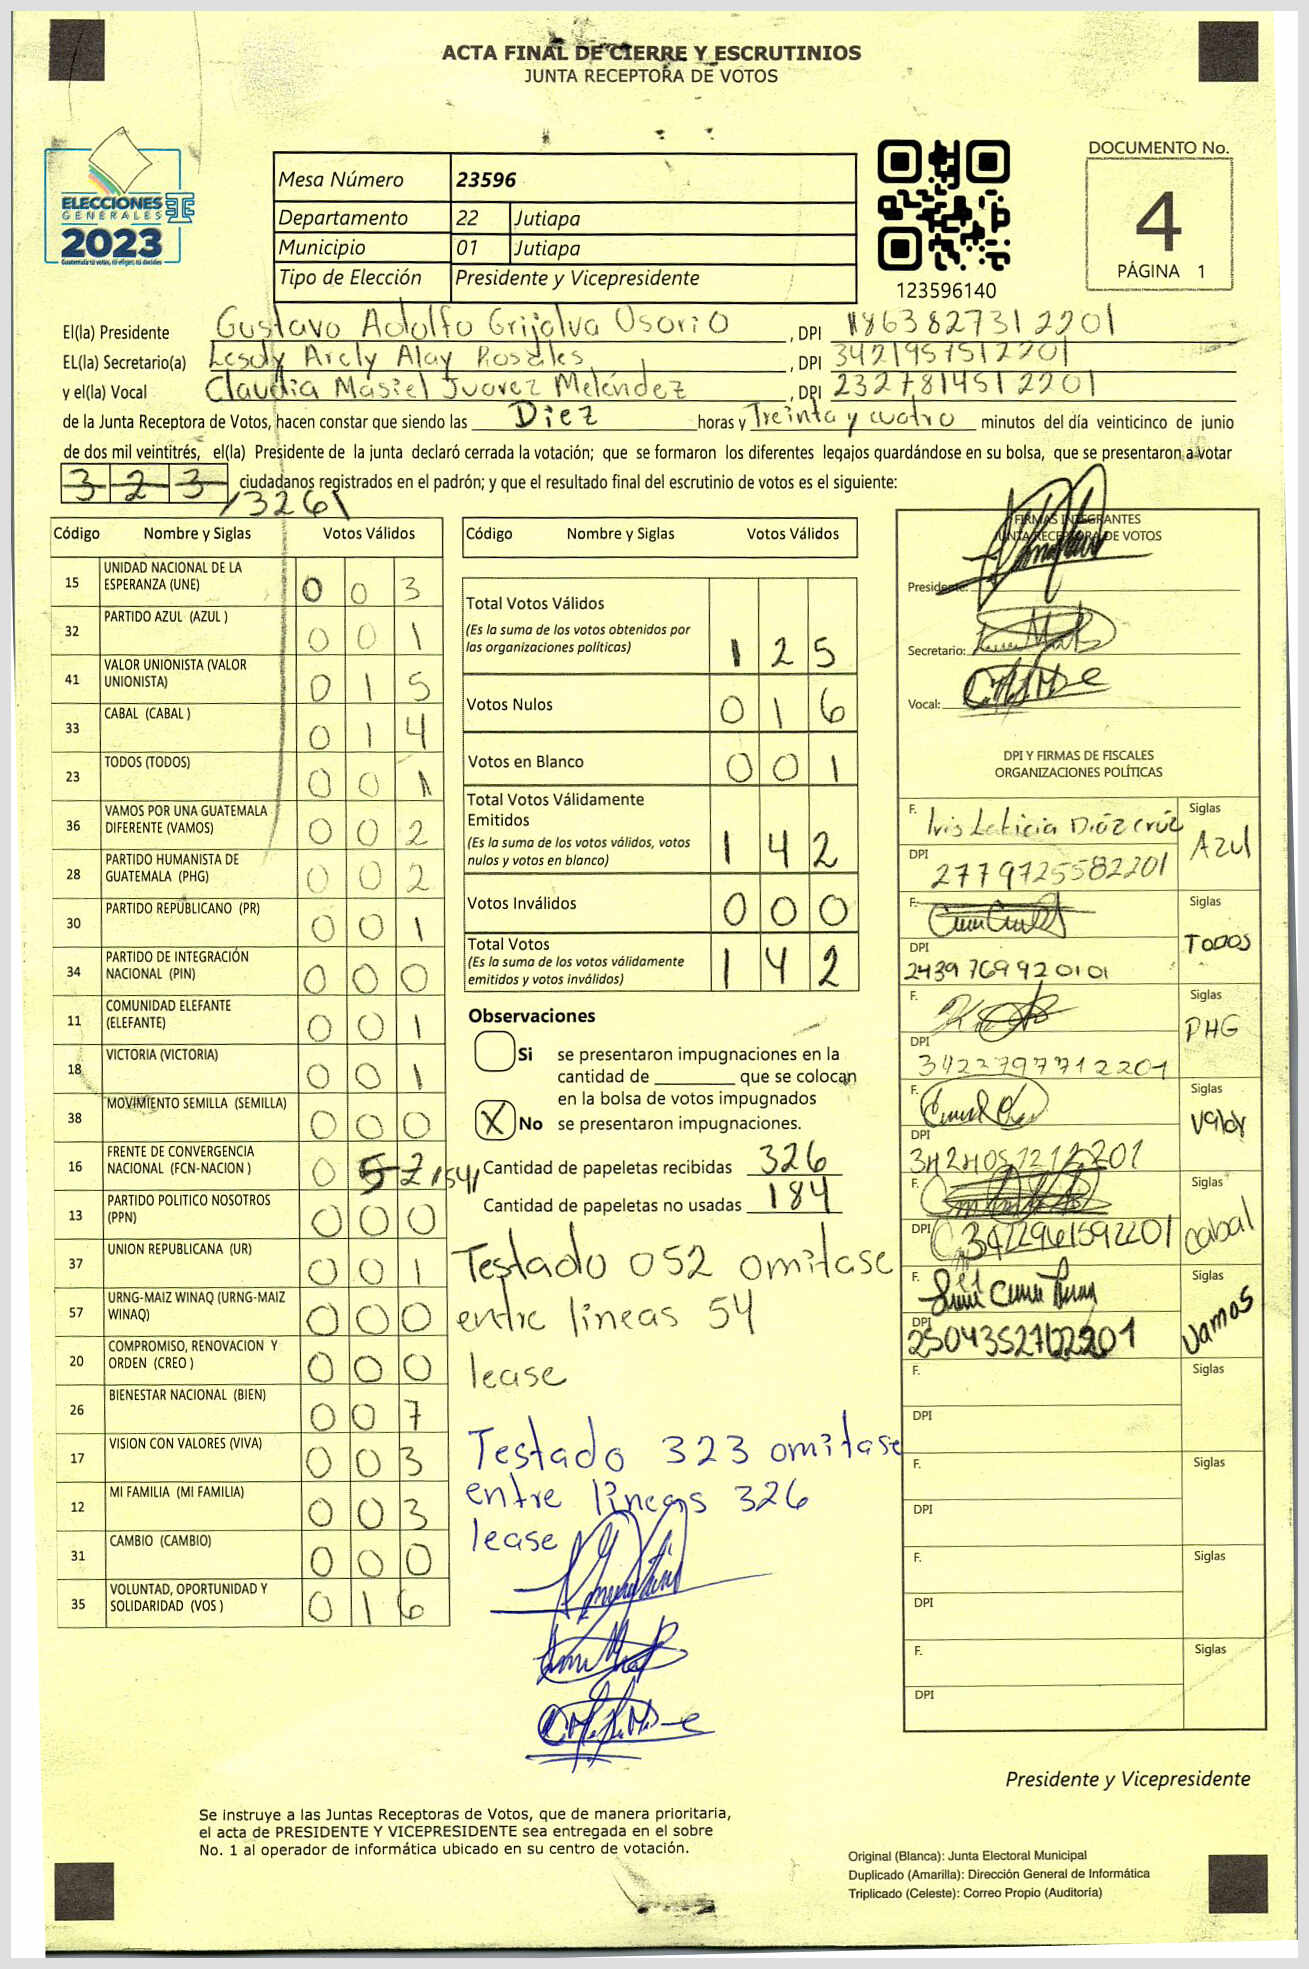 ACTA FINAL DE CIERRE Y ESCRUTINIOS
JUNTA RECEPTORA DE VOTOS
ELECCIONES
GENERALES
2023
Mesa Número 23596
Departamento 22 Jutiapa
Municipio 01 Jutiapa
Tipo de Elección Presidente y Vicepresidente
123596140
DOCUMENTO No.
4
PÁGINA 1
El(la) Presidente Gustavo Adolfo Grijalva Osorio, DPI 1863827312201
EL(la) Secretario(a) Lesdy Arely Alay Rosales, DPI 3421957512201
y el(la) Vocal Claudia Masiel Juarez Meléndez, DPI 2327814512201
de la Junta Receptora de Votos, hacen constar que siendo las Diez horas y Treinta y cuatro minutos del día veinticinco de junio
de dos mil veintitrés, el(la) Presidente de la junta declaró cerrada la votación; que se formaron los diferentes legajos guardándose en su bolsa, que se presentaron a votar
323 ciudadanos registrados en el padrón; y que el resultado final del escrutinio de votos es el siguiente:
/326\
Código Nombre y Siglas Votos Válidos
15 UNIDAD NACIONAL DE LA ESPERANZA (UNE) 0 0 3
32 PARTIDO AZUL (AZUL ) 0 0 1
41 VALOR UNIONISTA (VALOR UNIONISTA) 0 1 5
33 CABAL (CABAL ) 0 1 4
23 TODOS (TODOS) 0 0 1
36 VAMOS POR UNA GUATEMALA DIFERENTE (VAMOS) 0 0 2
28 PARTIDO HUMANISTA DE GUATEMALA (PHG) 0 0 2
30 PARTIDO REPUBLICANO (PR) 0 0 1
34 PARTIDO DE INTEGRACIÓN NACIONAL (PIN) 0 0 0
11 COMUNIDAD ELEFANTE (ELEFANTE) 0 0 1
18 VICTORIA (VICTORIA) 0 0 1
38 MOVIMIENTO SEMILLA (SEMILLA) 0 0 0
16 FRENTE DE CONVERGENCIA NACIONAL (FCN-NACION ) 0 5 2 /54/
13 PARTIDO POLITICO NOSOTROS (PPN) 0 0 0
37 UNION REPUBLICANA (UR) 0 0 1
57 URNG-MAIZ WINAQ (URNG-MAIZ WINAQ) 0 0 0
20 COMPROMISO, RENOVACION Y ORDEN (CREO ) 0 0 0
26 BIENESTAR NACIONAL (BIEN) 0 0 7
17 VISION CON VALORES (VIVA) 0 0 3
12 MI FAMILIA (MI FAMILIA) 0 0 3
31 CAMBIO (CAMBIO) 0 0 0
35 VOLUNTAD, OPORTUNIDAD Y SOLIDARIDAD (VOS ) 0 1 6
Código Nombre y Siglas Votos Válidos
Total Votos Válidos 1 2 5
(Es la suma de los votos obtenidos por
las organizaciones políticas)
Votos Nulos 0 1 6
Votos en Blanco 0 0 1
Total Votos Válidamente
Emitidos 1 4 2
(Es la suma de los votos válidos, votos
nulos y votos en blanco)
Votos Inválidos 0 0 0
Total Votos 1 4 2
(Es la suma de los votos válidamente
emitidos y votos inválidos)
Observaciones
Si se presentaron impugnaciones en la
cantidad de ________ que se colocan
en la bolsa de votos impugnados
X No se presentaron impugnaciones.
Cantidad de papeletas recibidas 326
Cantidad de papeletas no usadas 184
Testado 052 omitase
entre lineas 54
lease
Testado 323 omitase
entre lineas 326
lease
FIRMAS INTEGRANTES
JUNTA RECEPTORA DE VOTOS
Presidente:
Secretario:
Vocal:
DPI Y FIRMAS DE FISCALES
ORGANIZACIONES POLÍTICAS
F. Iris Leticia Diáz cruz Siglas Azul
DPI 2779725582201
F. Siglas TODOS
DPI 2439769920101
F. Siglas PHG
DPI 3422797712201
F. Siglas Valor
DPI
F. Siglas Cabal
DPI 3422961592201
F. Siglas Vamos
DPI
F. Siglas
DPI
F. Siglas
DPI
F. Siglas
DPI
F. Siglas
DPI
Presidente y Vicepresidente
Se instruye a las Juntas Receptoras de Votos, que de manera prioritaria,
el acta de PRESIDENTE Y VICEPRESIDENTE sea entregada en el sobre
No. 1 al operador de informática ubicado en su centro de votación.
Original (Blanca): Junta Electoral Municipal
Duplicado (Amarilla): Dirección General de Informática
Triplicado (Celeste): Correo Propio (Auditoría)